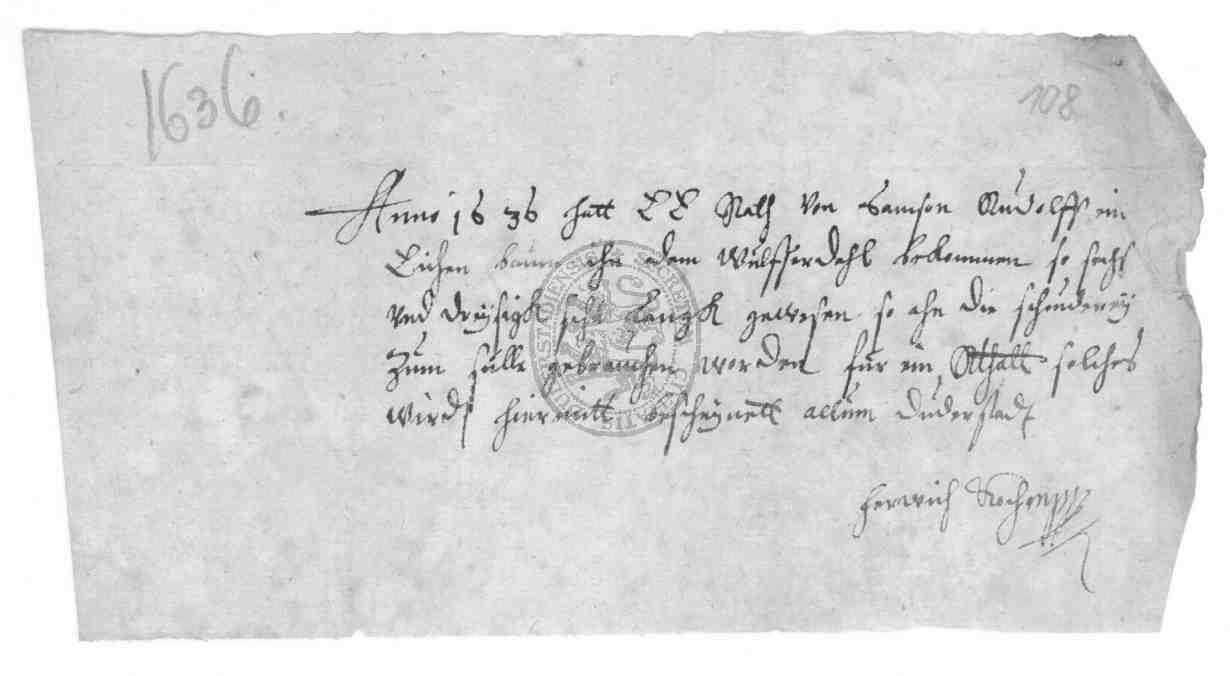 1636.
108
Anno 1636 hatt E E Rath von Samson Rudolff ein
Eichen baum ihn dem Wulfferdehl bekommen so sechs
und dreysigk schu langk gewesen so ahn die schinderey
zum sulle gebrauchen worden fur ein solches
wirdt hiermitt bescheynett actum Duderstadt
Herwich